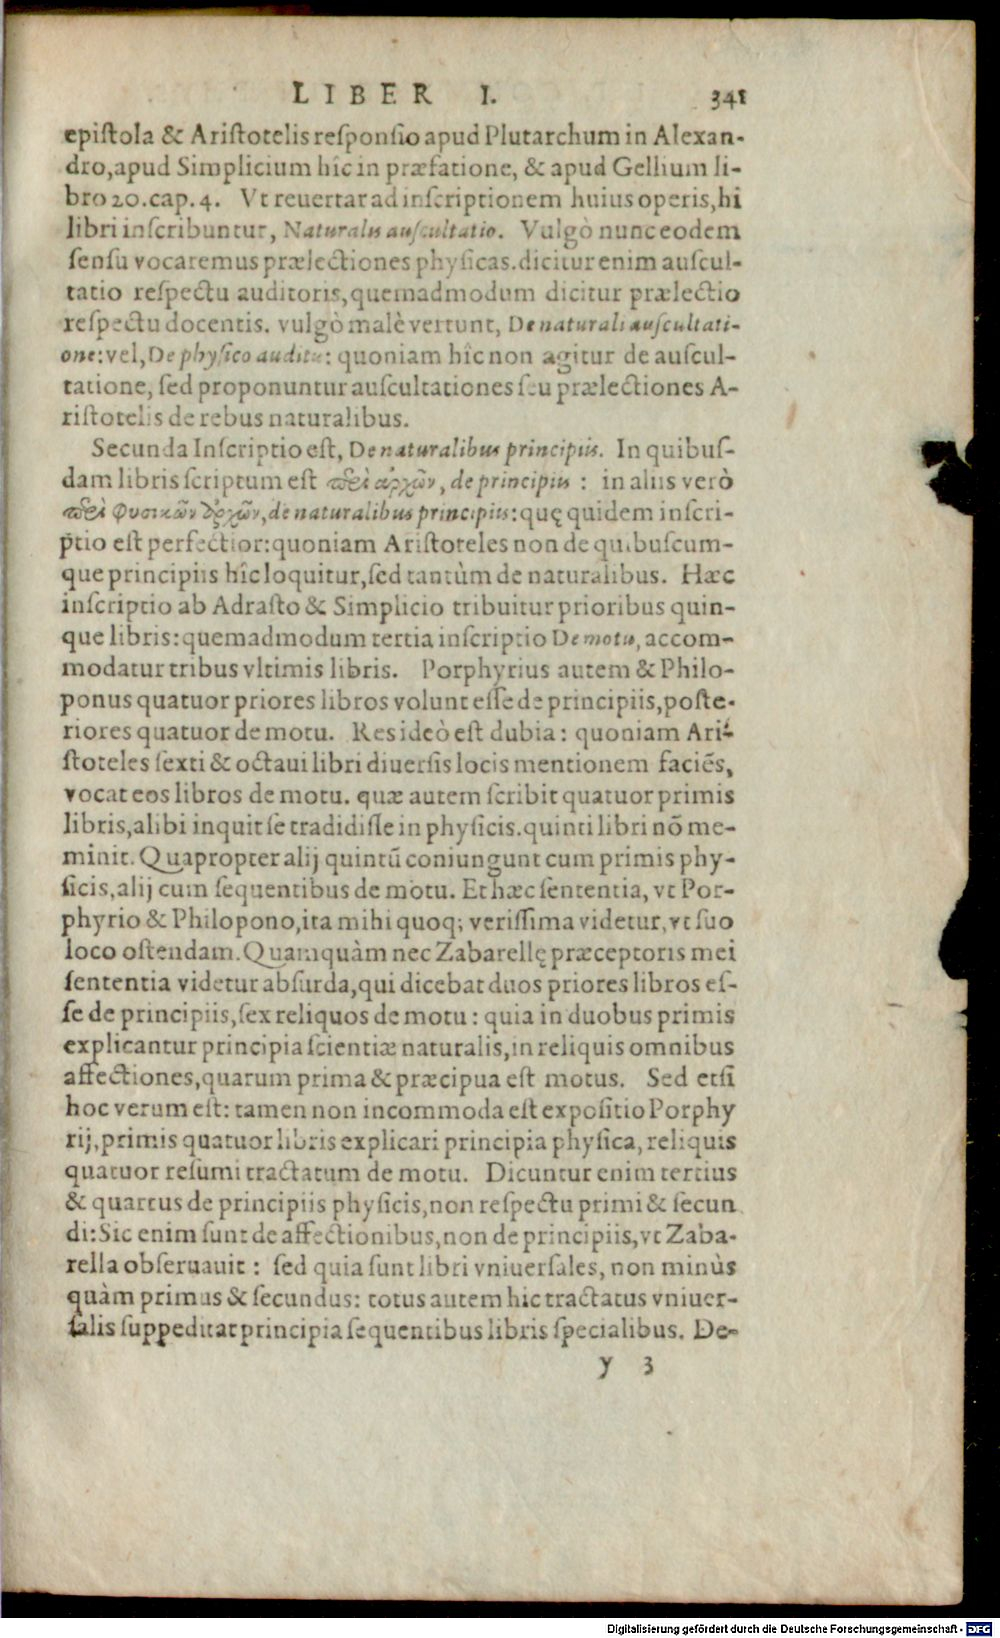 LIBER I. 341
epistola & Aristotelis responsio apud Plutarchum in Alexan-
dro, apud Simplicium hîc in præfatione, & apud Gellium li-
bro 20. cap. 4. Vt reuertar ad inscriptionem huius operis, hi
libri inscribuntur, Naturalis auscultatio. Vulgò nunc eodem
sensu vocaremus prælectiones physicas. dicitur enim auscul-
tatio respectu auditoris, quemadmodum dicitur prælectio
respectu docentis. vulgò malè vertunt, De naturali auscultati-
one: vel, De physico auditu: quoniam hîc non agitur de auscul-
tatione, sed proponuntur auscultationes seu prælectiones A-
ristotelis de rebus naturalibus.
Secunda Inscriptio est, De naturalibus principiis. In quibus-
dam libris scriptum est περὶ ἀρχῶν, de principiis: in aliis verò
περὶ φυσικῶν ἀρχῶν, de naturalibus principiis: quę quidem inscri-
ptio est perfectior: quoniam Aristoteles non de quibuscum-
que principiis hîc loquitur, sed tantùm de naturalibus. Hæc
inscriptio ab Adrasto & Simplicio tribuitur prioribus quin-
que libris: quemadmodum tertia inscriptio De motu, accom-
modatur tribus vltimis libris. Porphyrius autem & Philo-
ponus quatuor priores libros volunt esse de principiis, poste-
riores quatuor de motu. Res ideò est dubia: quoniam Ari-
stoteles sexti & octaui libri diuersis locis mentionem faciēs,
vocat eos libros de motu. quæ autem scribit quatuor primis
libris, alibi inquit se tradidisse in physicis. quinti libri nō me-
minit. Quapropter alij quintū coniungunt cum primis phy-
sicis, alij cum sequentibus de motu. Et hæc sententia, vt Por-
phyrio & Philopono, ita mihi quoq; verissima videtur, vt suo
loco ostendam. Quamquàm nec Zabarellę præceptoris mei
sententia videtur absurda, qui dicebat duos priores libros es-
se de principiis, sex reliquos de motu: quia in duobus primis
explicantur principia scientiæ naturalis, in reliquis omnibus
affectiones, quarum prima & præcipua est motus. Sed etsi
hoc verum est: tamen non incommoda est expositio Porphy
rij, primis quatuor libris explicari principia physica, reliquis
quatuor resumi tractatum de motu. Dicuntur enim tertius
& quartus de principiis physicis, non respectu primi & secun
di: Sic enim sunt de affectionibus, non de principiis, vt Zaba-
rella obseruauit: sed quia sunt libri vniuersales, non minùs
quàm primus & secundus: totus autem hic tractatus vniuer-
salis suppeditat principia sequentibus libris specialibus. De-
y 3
Digitalisierung gefördert durch die Deutsche Forschungsgemeinschaft - DFG